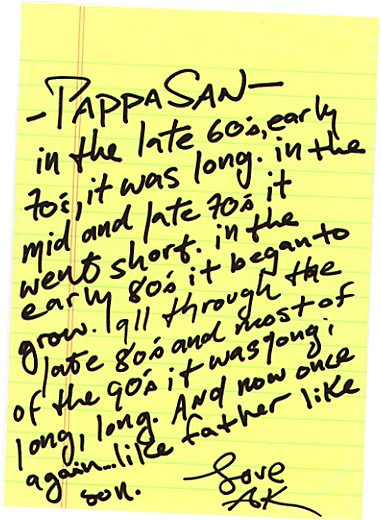 - PAPPA SAN -
in the late 60's, early
70's, it was long. in the
mid and late 70's it
went short. in the
early 80's it began to
grow. all through the
late 80's and most of
of the 90's it was long;
long, long. And now once
again...like father like
son.
Love
AK